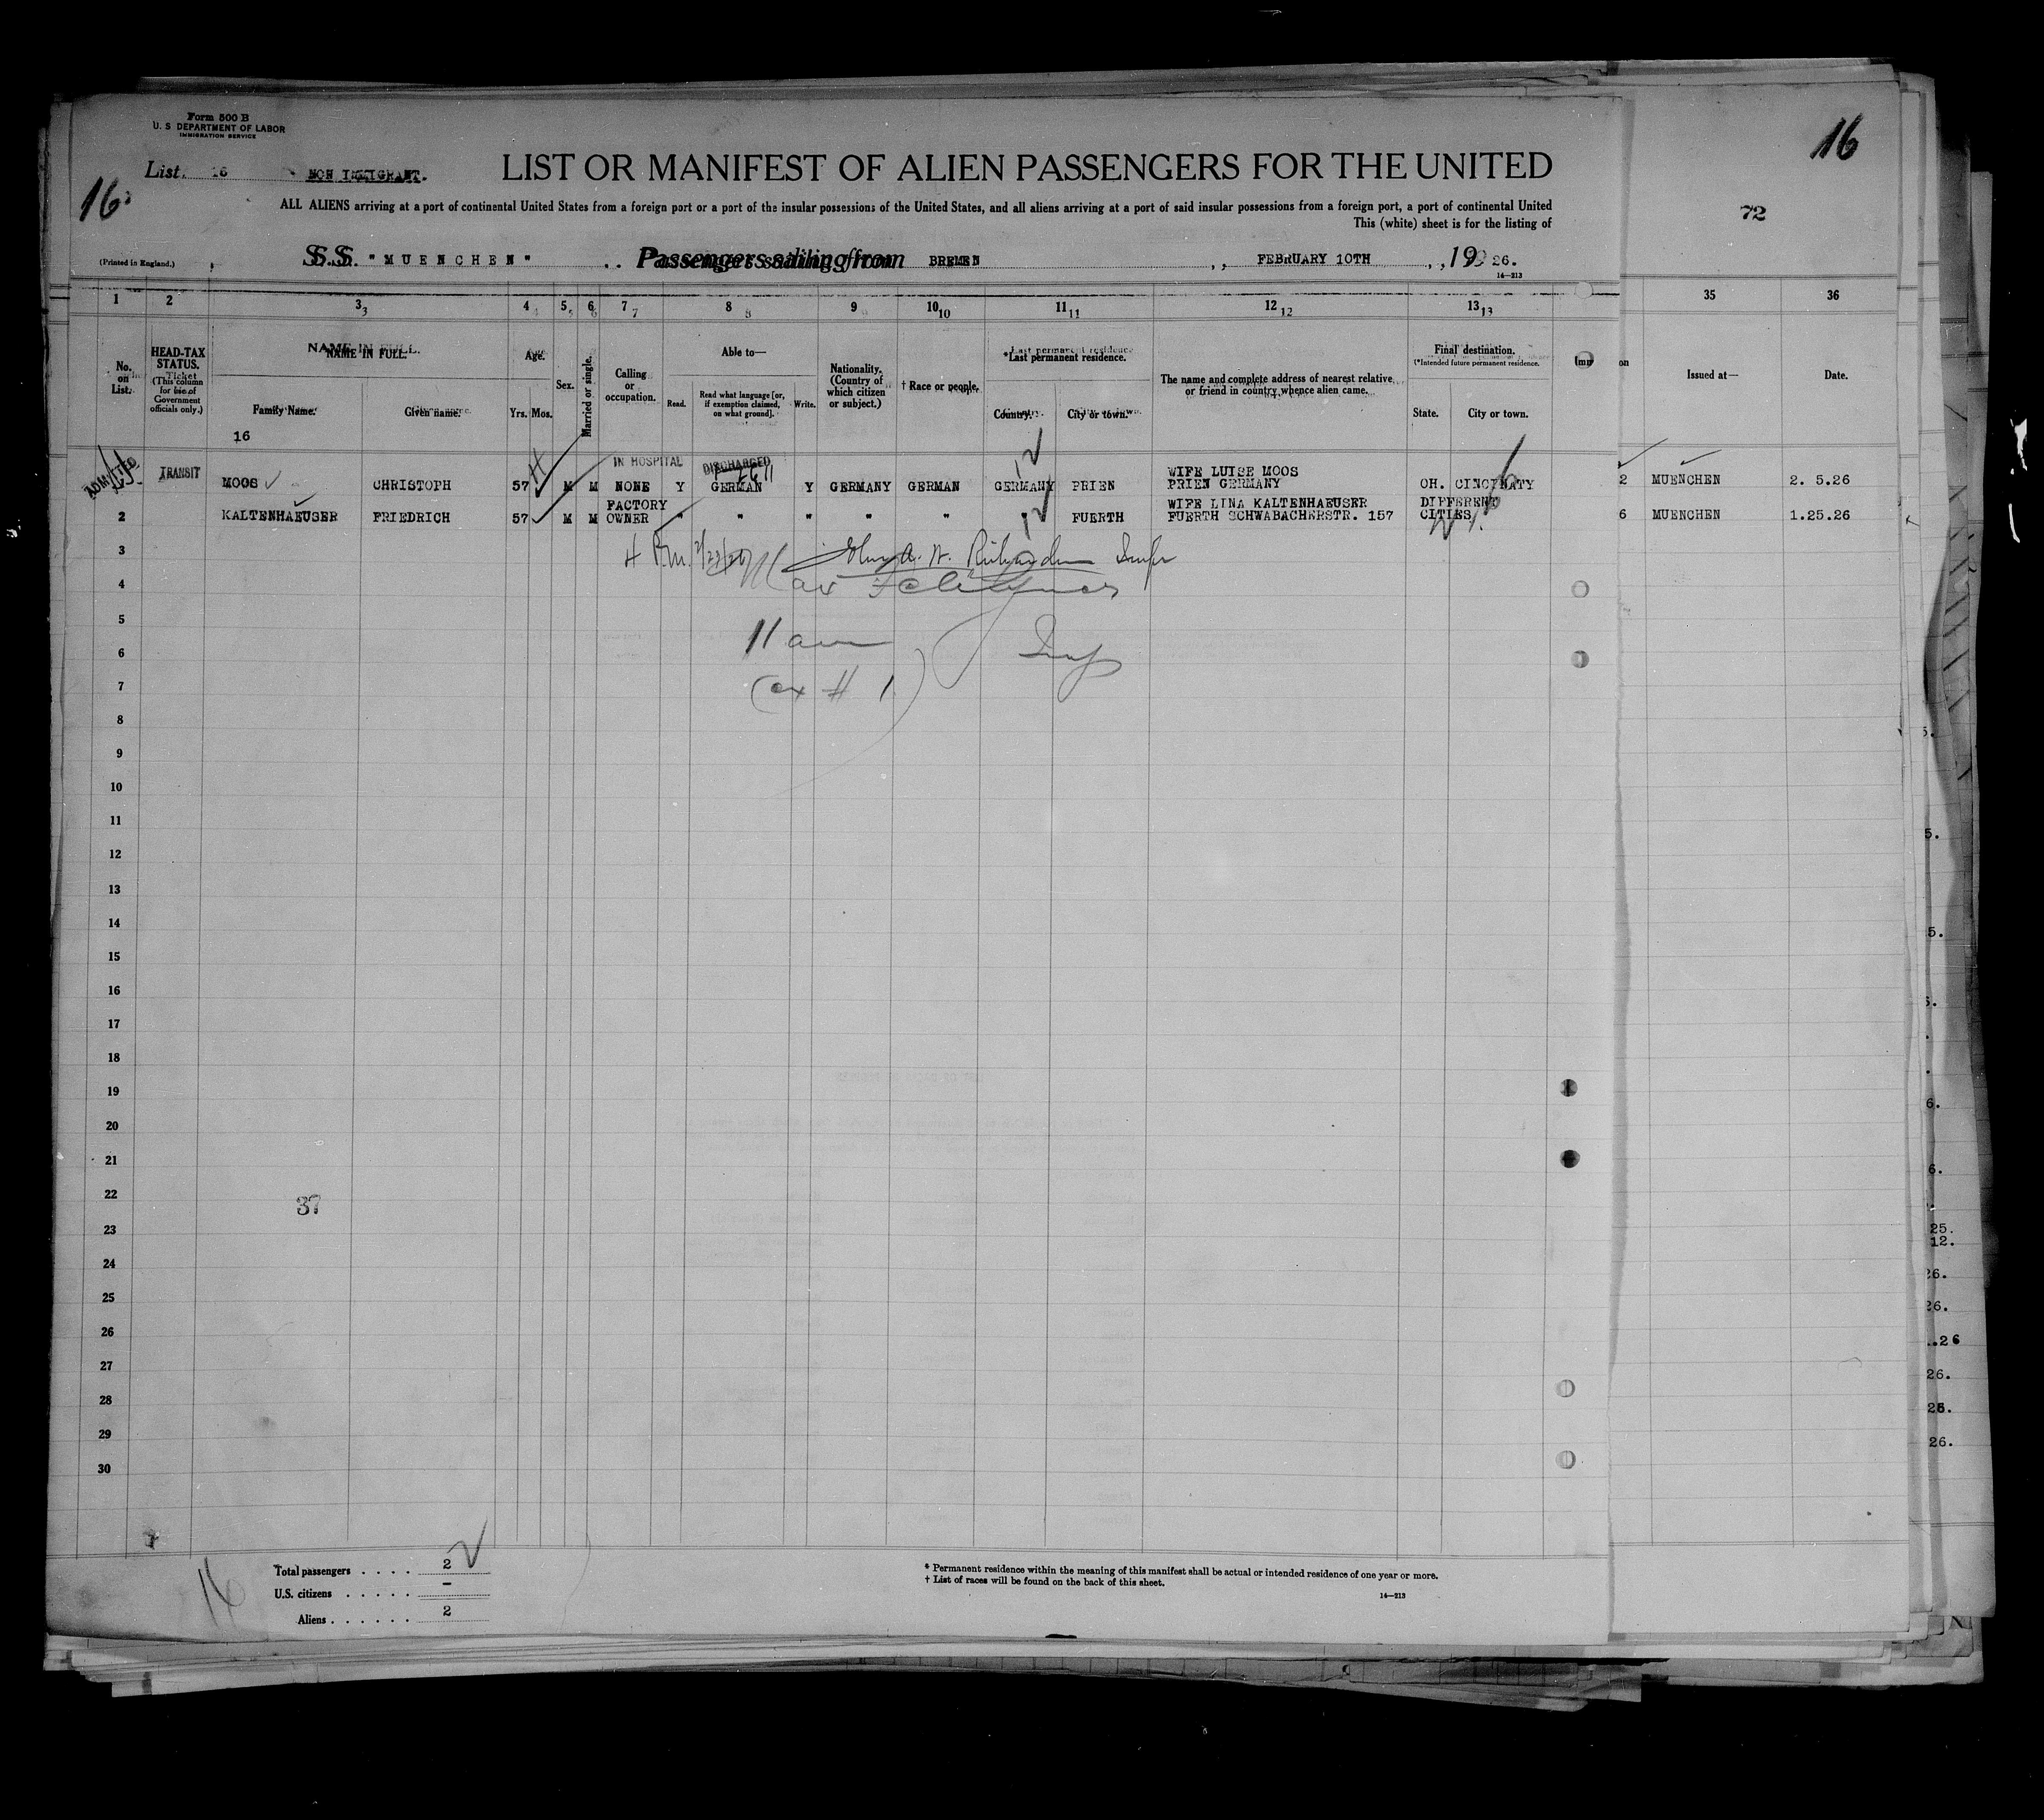 Form 500 B
U. S. DEPARTMENT OF LABOR
IMMIGRATION SERVICE
List 16 NON IMMIGRANT.
16
LIST OR MANIFEST OF ALIEN PASSENGERS FOR THE UNITED
16
72
ALL ALIENS arriving at a port of continental United States from a foreign port or a port of the insular possessions of the United States, and all aliens arriving at a port of said insular possessions from a foreign port, a port of continental United
This (white) sheet is for the listing of
(Printed in England.)
S.S. "MUENCHEN" Passengers sailing from BREMEN, FEBRUARY 10TH, 1926.
14—213
1 2 3 4 5 6 7 8 9 10 11 12 13 35 36
No. on List.
HEAD-TAX STATUS.
(This column for use of Government officials only.)
NAME IN FULL.
Family Name. Given name.
Age.
Yrs. Mos.
Sex.
Married or single.
Calling or occupation.
Able to—
Read. Read what language [or, if exemption claimed, on what ground]. Write.
Nationality. (Country of which citizen or subject.)
† Race or people.
*Last permanent residence.
Country. City or town.
The name and complete address of nearest relative or friend in country whence alien came.
Final destination.
(*Intended future permanent residence.
State. City or town.
Issued at—
Date.
16
ADMITTED TRANSIT IN HOSPITAL DISCHARGED
MOOS CHRISTOPH 57 M M NONE Y GERMAN Y GERMANY GERMAN GERMANY PRIEN WIFE LUISE MOOS PRIEN GERMANY OH. CINCINATY 2 MUENCHEN 2. 5.26
2 KALTENHAEUSER FRIEDRICH 57 M M FACTORY OWNER " " " " " " FUERTH WIFE LINA KALTENHAEUSER FUERTH SCHWABACHERSTR. 157 DIFFERENT CITIES 6 MUENCHEN 1.25.26
3
4
5
11 am
6
7
(ex # 1)
8
9
10
11
12
13
14
15
16
17
18
19
20
21
22
37
23
24
25
26
27
28
29
30
Total passengers . . . . 2
U.S. citizens . . . . . –
Aliens . . . . . . 2
16
* Permanent residence within the meaning of this manifest shall be actual or intended residence of one year or more.
† List of races will be found on the back of this sheet.
14—213